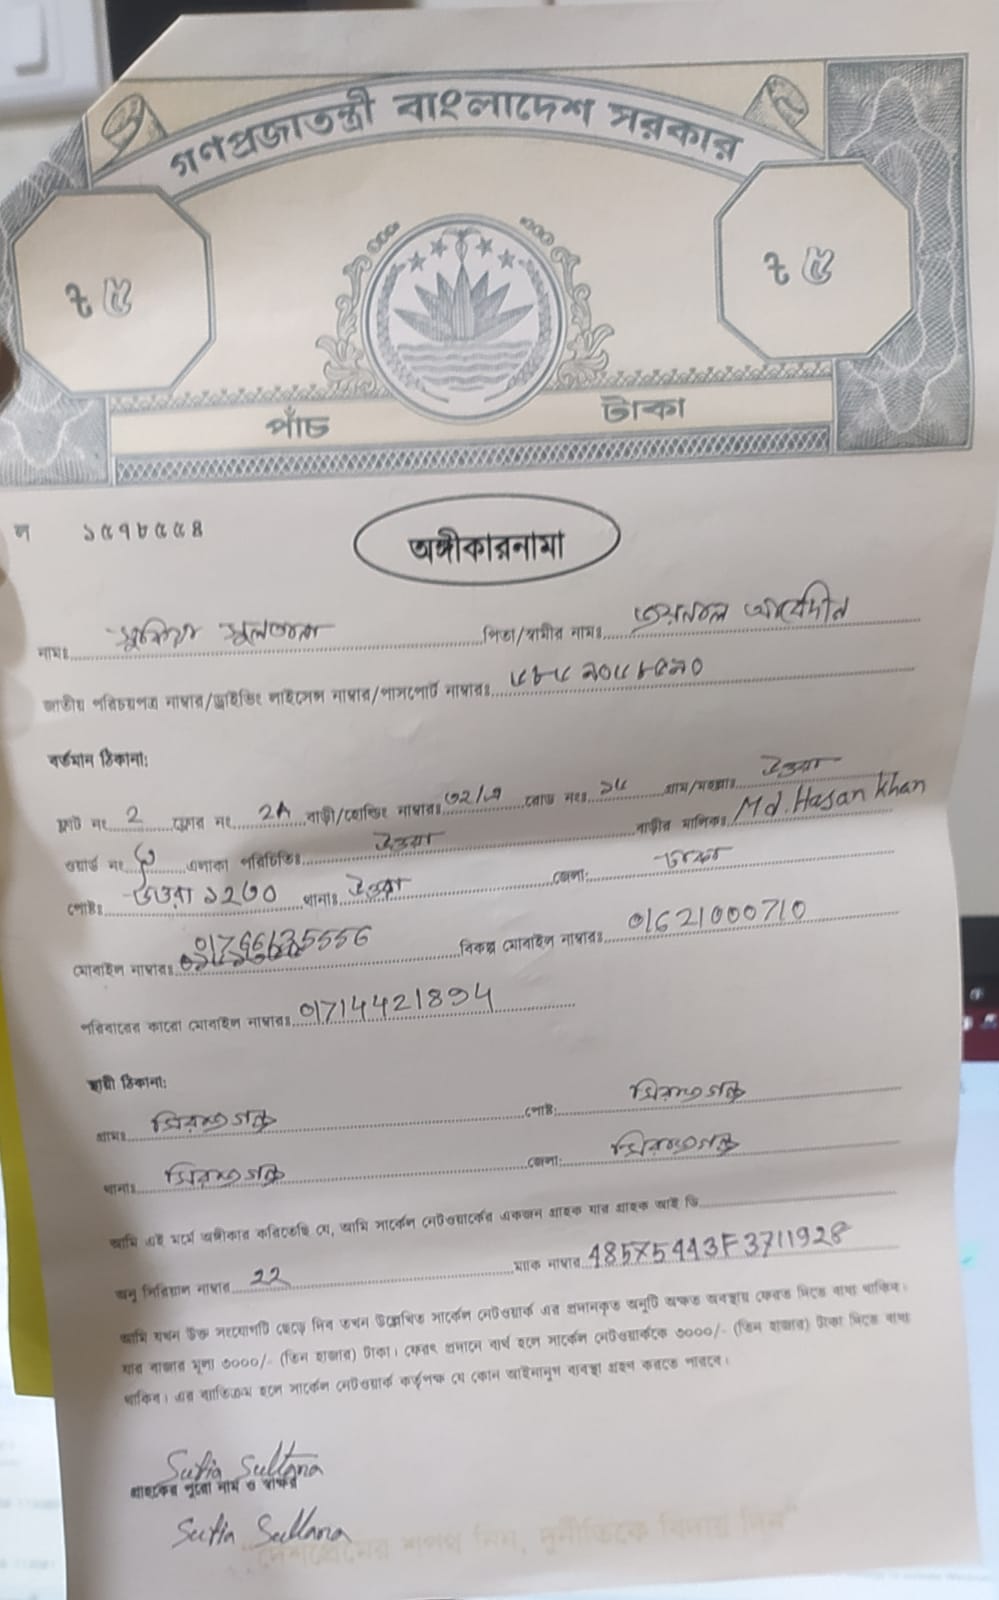 গণপ্রজাতন্ত্রী বাংলাদেশ সরকার
৳ ৫ ৳ ৫
পাঁচ টাকা
ল ১৫৭৮৫৫৪
অঙ্গীকারনামা
নামঃ সুফিয়া সুলতানা পিতা/স্বামীর নামঃ জয়নাল আবেদীন
জাতীয় পরিচয়পত্র নাম্বার/ড্রাইভিং লাইসেন্স নাম্বার/পাসপোর্ট নাম্বারঃ
বর্তমান ঠিকানা:
ফ্লাট নং 2 ফ্লোর নং 2A বাড়ী/হোল্ডিং নাম্বারঃ রোড নংঃ ১৫ গ্রাম/মহল্লাঃ উত্তরা
ওয়ার্ড নং এলাকা পরিচিতিঃ উত্তরা বাড়ীর মালিকঃ Md. Hasan Khan
পোষ্টঃ উত্তরা ১২৩০ থানাঃ উত্তরা জেলা: ঢাকা
মোবাইল নাম্বারঃ বিকল্প মোবাইল নাম্বারঃ 01621000710
পরিবারের কারো মোবাইল নাম্বারঃ 01714421894
স্থায়ী ঠিকানা:
গ্রামঃ সিরাজগঞ্জ পোষ্ট: সিরাজগঞ্জ
থানাঃ সিরাজগঞ্জ জেলা: সিরাজগঞ্জ
আমি এই মর্মে অঙ্গীকার করিতেছি যে, আমি সার্কেল নেটওয়ার্কের একজন গ্রাহক যার গ্রাহক আই ডি
অনু সিরিয়াল নাম্বার 22 ম্যাক নাম্বার 48575443F3711928
আমি যখন উক্ত সংযোগটি ছেড়ে দিব তখন উল্লেখিত সার্কেল নেটওয়ার্ক এর প্রদানকৃত অনুটি অক্ষত অবস্থায় ফেরত দিতে বাধ্য থাকিব।
যার বাজার মূল্য ৩০০০/- (তিন হাজার) টাকা। ফেরৎ প্রদানে ব্যর্থ হলে সার্কেল নেটওয়ার্ককে ৩০০০/- (তিন হাজার) টাকা দিতে বাধ্য
থাকিব। এর ব্যতিক্রম হলে সার্কেল নেটওয়ার্ক কর্তৃপক্ষ যে কোন আইনানুগ ব্যবস্থা গ্রহন করতে পারবে।
Sufia Sultana
গ্রাহকের পুরো নাম ও স্বাক্ষর
Sufia Sultana
"দেশপ্রেমের শপথ নিন, দুর্নীতিকে বিদায় দিন"